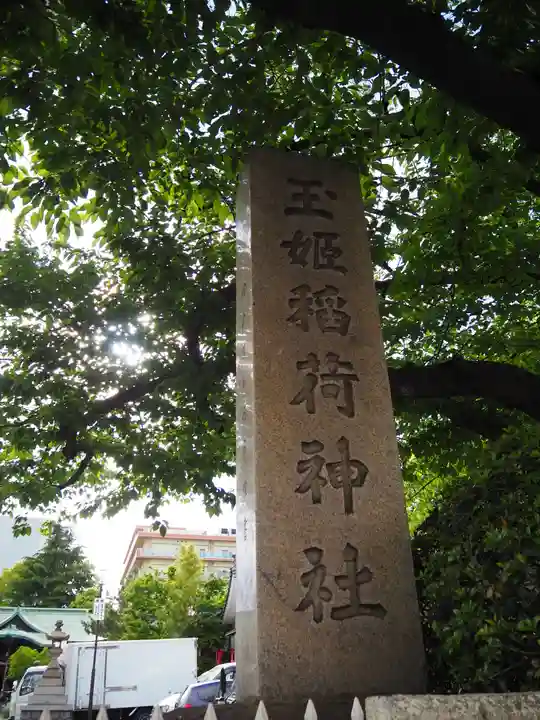 玉姫稲荷神社